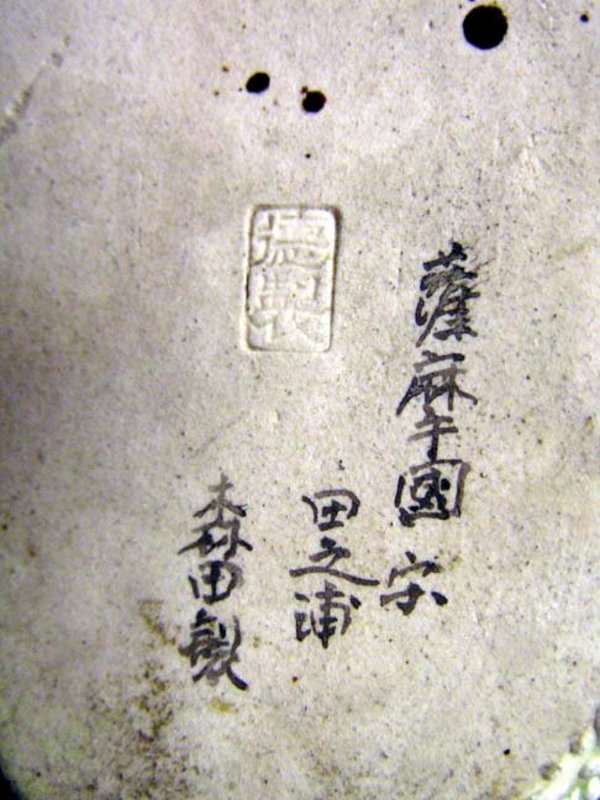 薩摩國 宋
田之浦
森田製
徳製